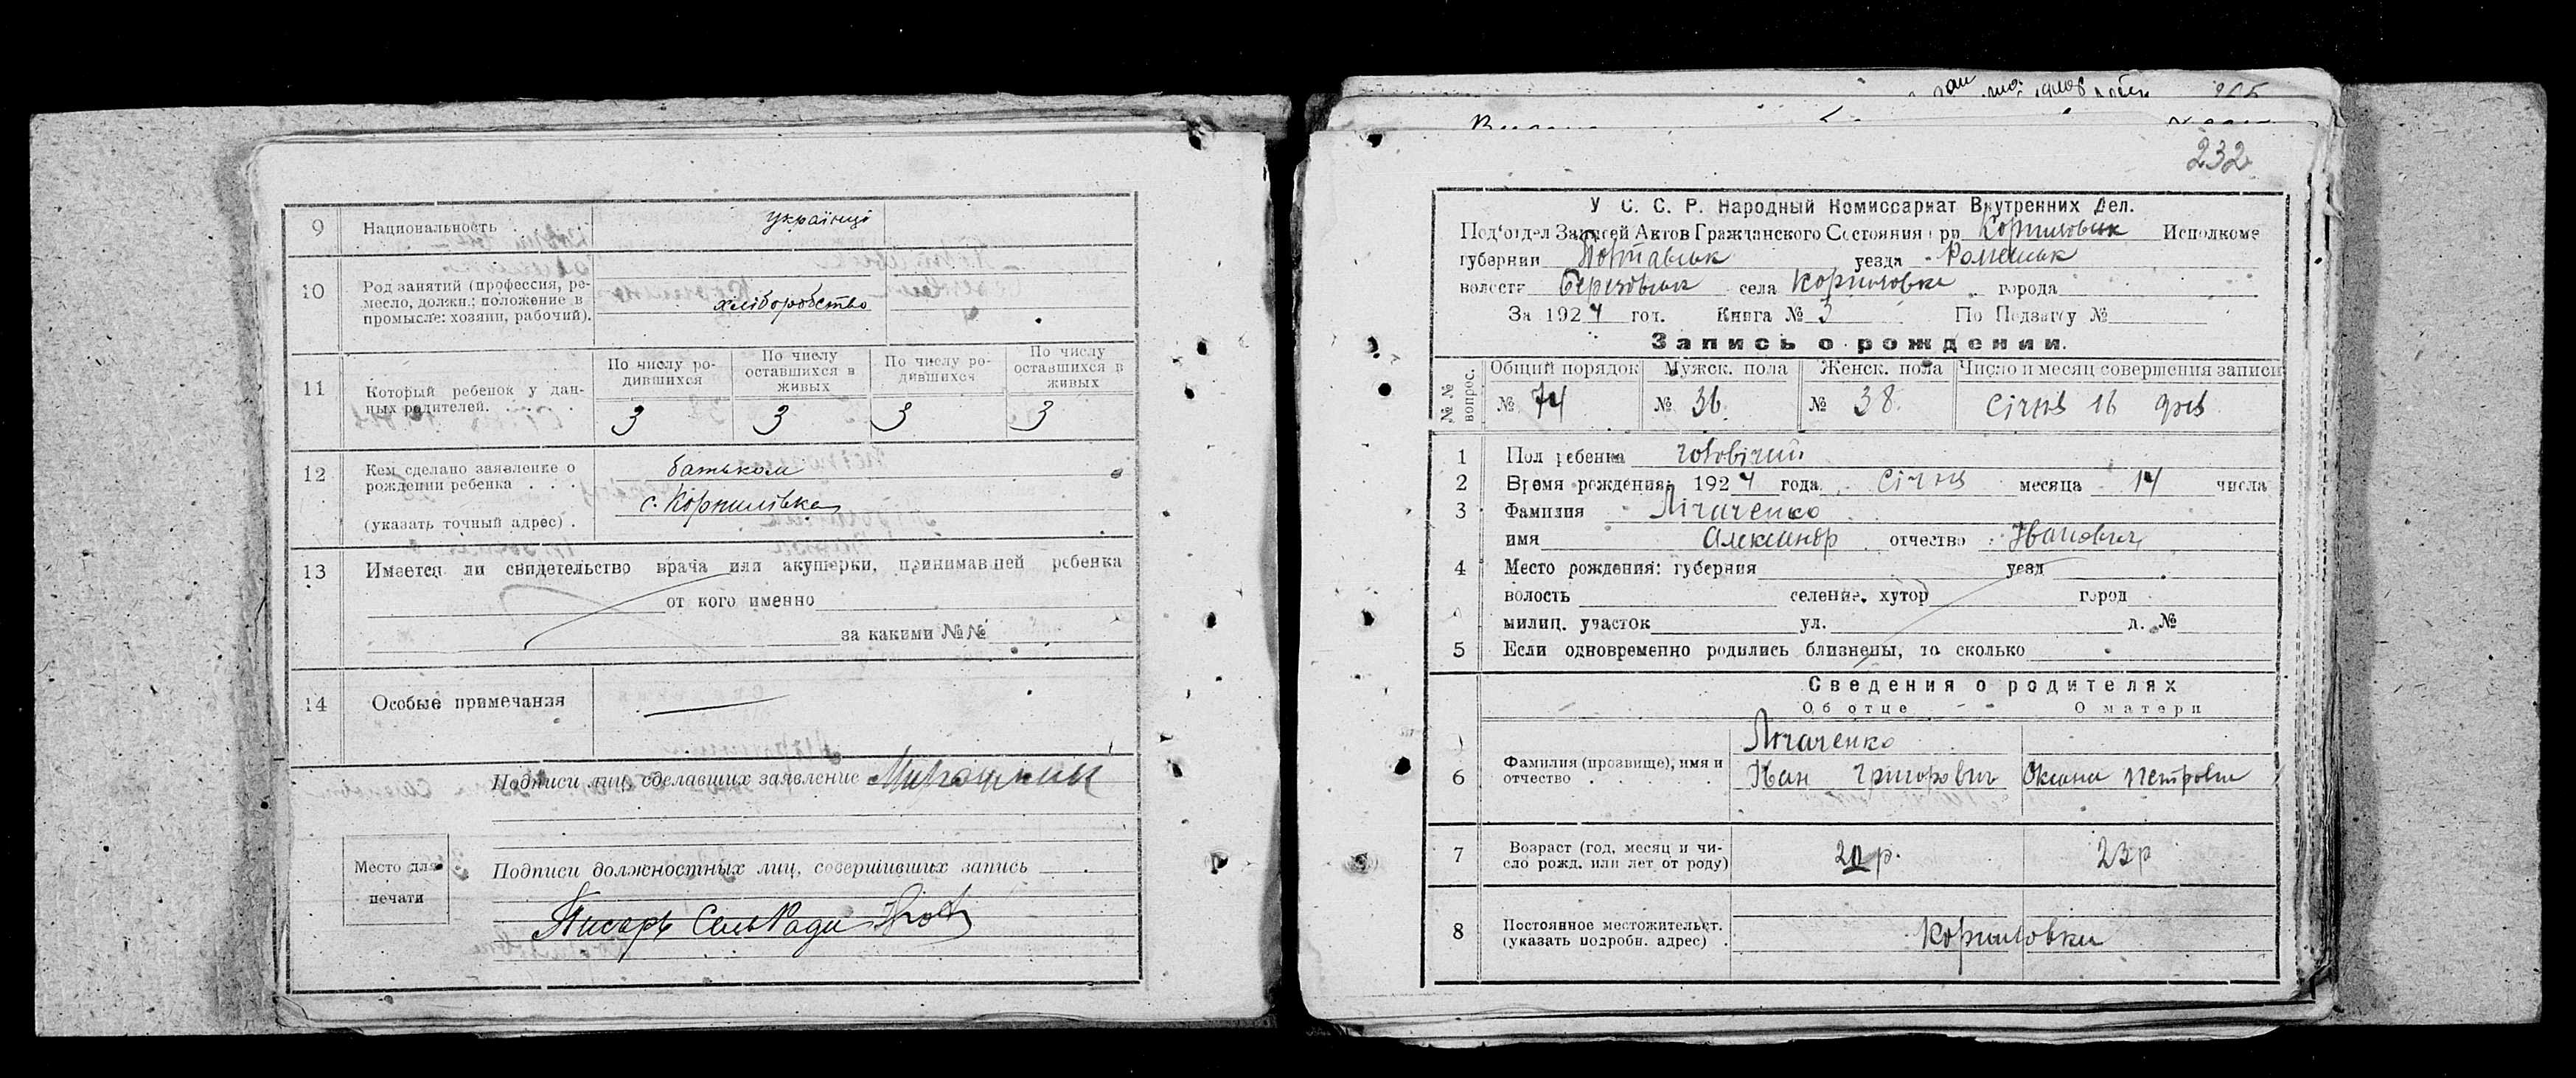 9 Национальность українці
10 Род занятий (профессия, ре-
месло, должн.; положение в
промысле: хозяин, рабочий). хліборобство
11 Который ребенок у дан-
ных родителей.
По числу ро-
дившихся
По числу
оставшихся в
живых
По числу ро-
дившихся
По числу
оставшихся в
живых
3 3 3 3
12 Кем сделано заявление о батьком
рождении ребенка . . .
с. Корнилівка
(указать точный адрес) .
13 Имеется ли свидетельство врача или акушерки, принимавшей ребенка
от кого именно
за какими №№
14 Особые примечания
Подписи лиц, сделавших заявление
Место для
печати
Подписи должностных лиц, совершивших запись
Писарь СельРади
232
У С. С. Р. Народный Комиссариат Внутренних Дел.
Под'отдел Записей Актов Гражданского Состояния при Исполкоме
губернии Полтавськ уезда Роменськ
волости села города
За 1924 год. Книга № 3 По Подзагсу №
Запись о рождении.
№ № вопрос.
Общий порядок Мужск. пола Женск. пола Число и месяц совершения записи
№ 74 № 36 № 38 Січня 16 дня
1 Пол ребенка чоловічий
2 Время рождения: 1924 года Січня месяца 14 числа
3 Фамилия
имя Александр отчество Іванович
4 Место рождения: губерния уезд
волость селение, хутор город
милиц. участок ул. д. №
5 Если одновременно родились близнецы, то сколько
Сведения о родителях
Об отце О матери
6 Фамилия (прозвище), имя и
отчество
Іван Григорович Оксана Петровна
7 Возраст (год, месяц и чи-
сло рожд. или лет от роду) 23р
8 Постоянное местожительст.
(указать подробн. адрес) .